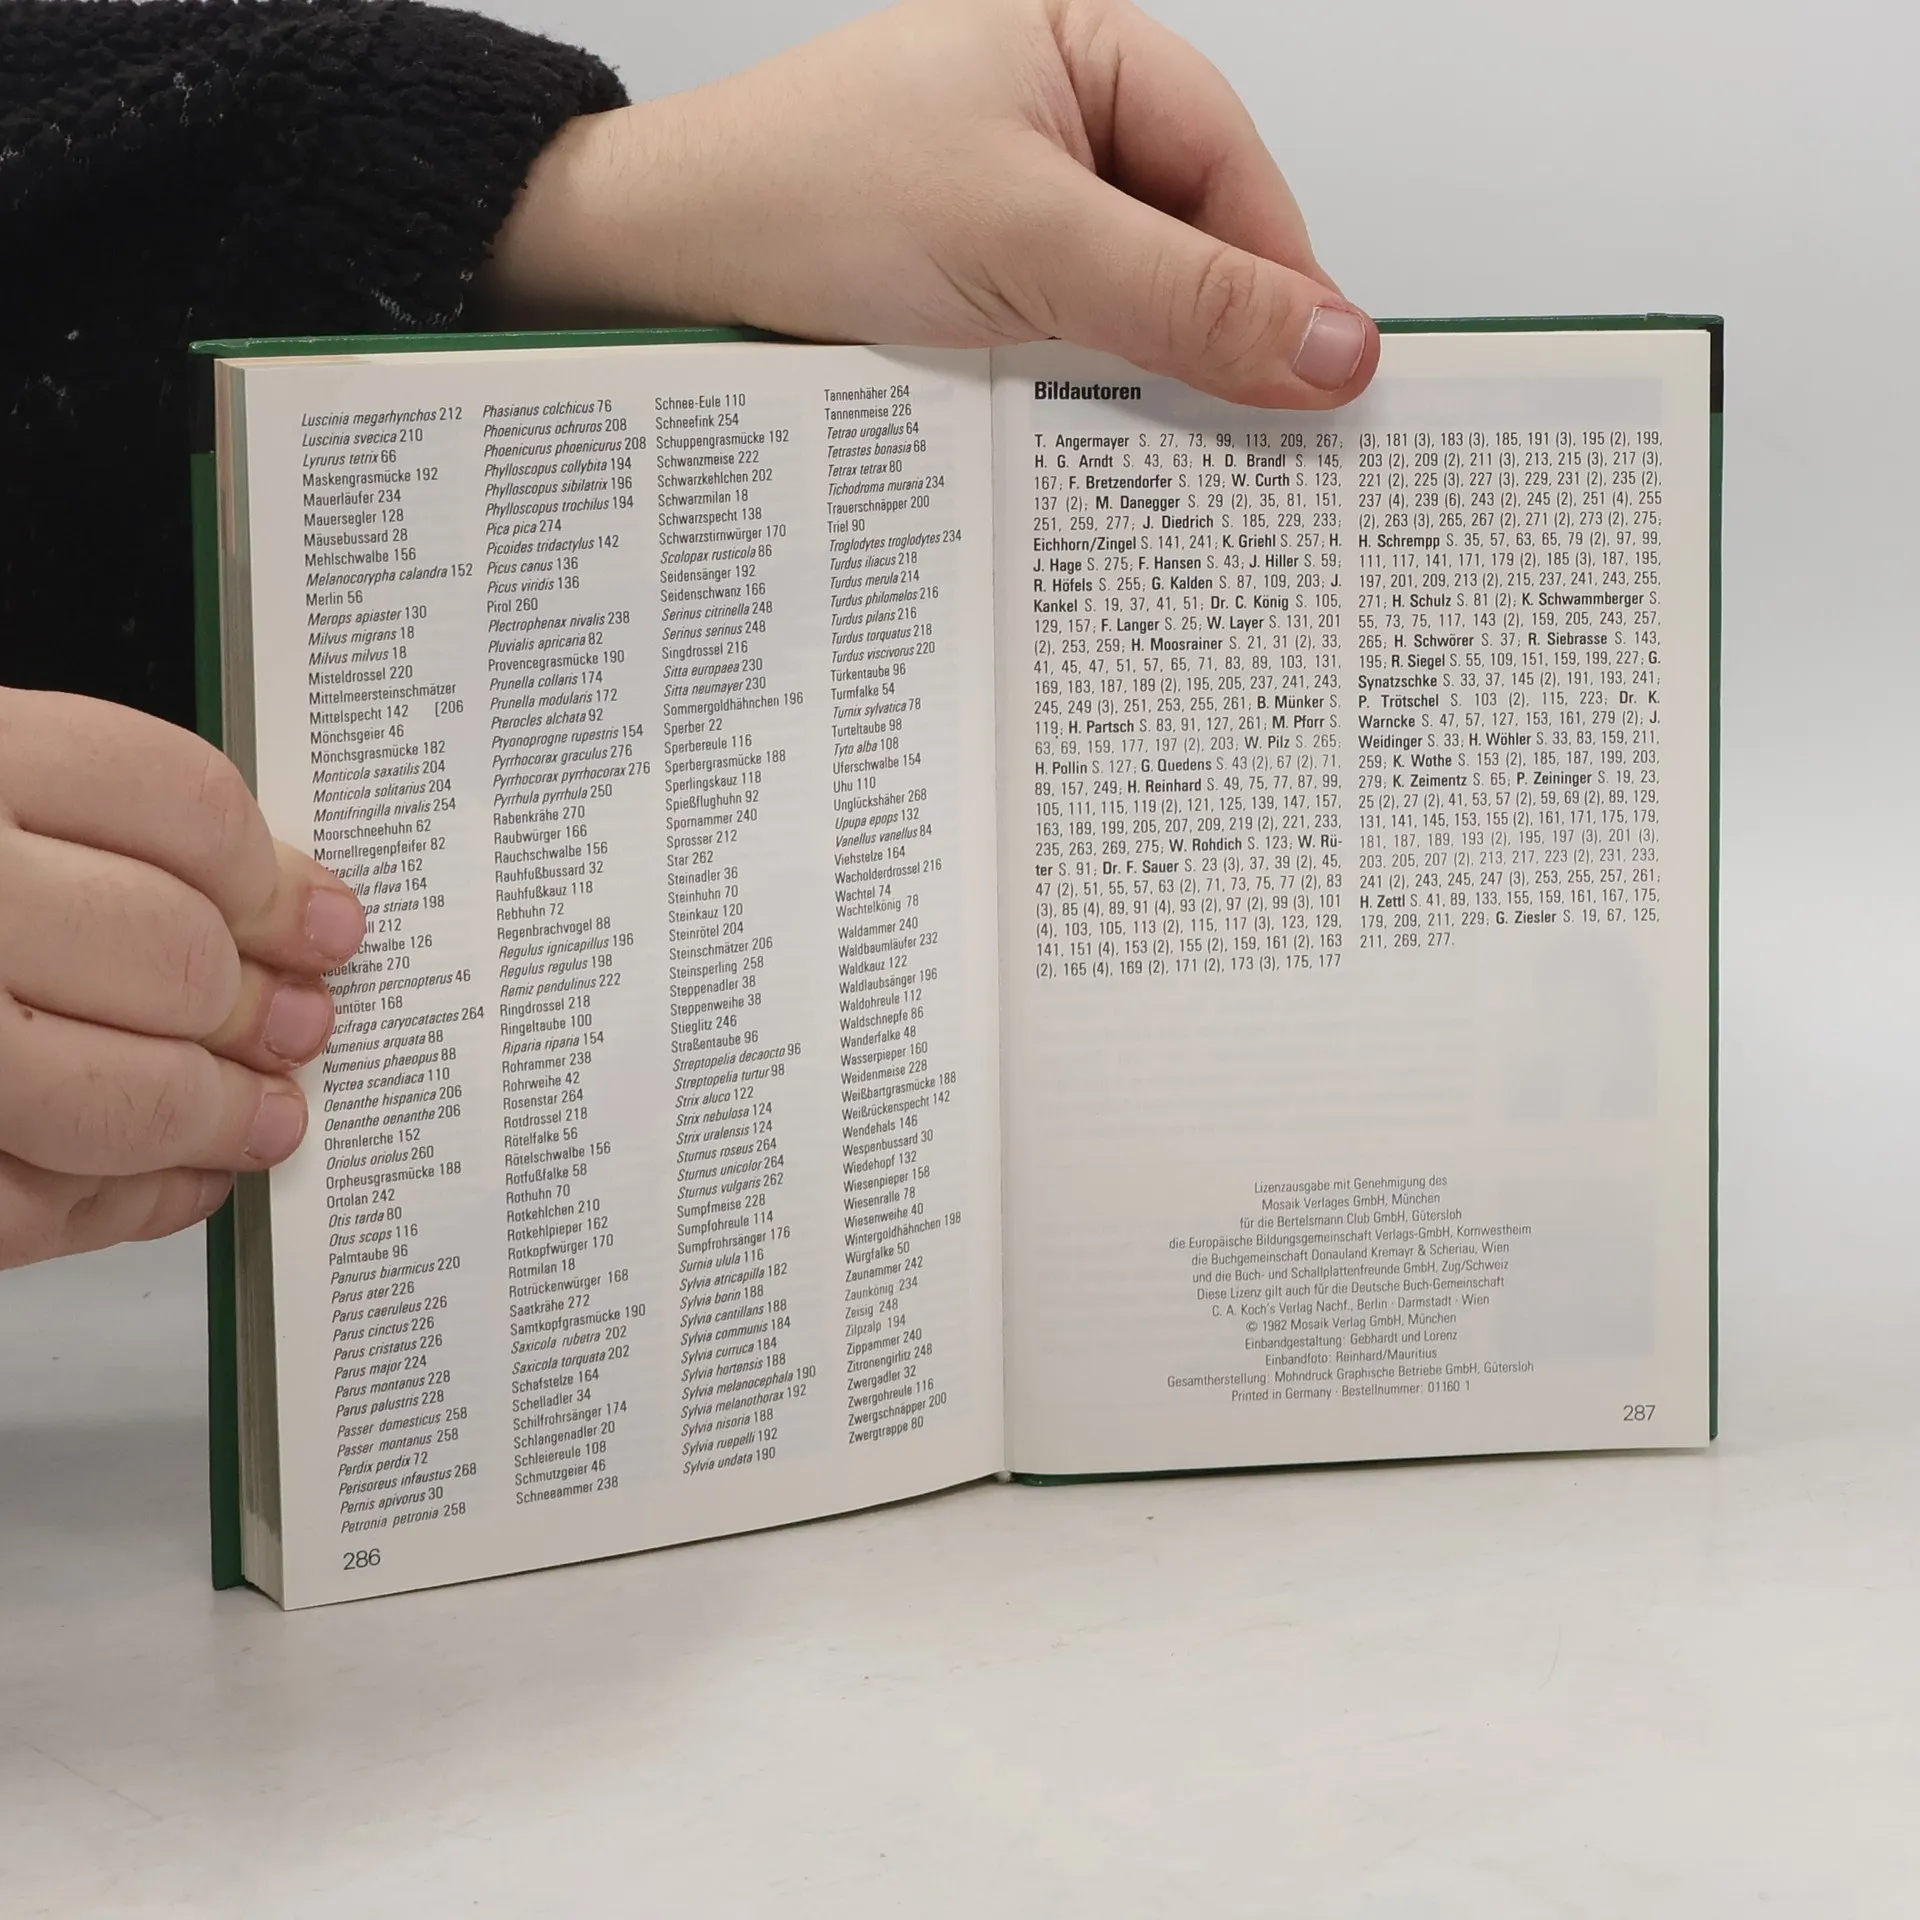 Luscinia megarhynchos 212
Luscinia svecica 210
Lyrurus tetrix 66
Maskengrasmücke 192
Mauerläufer 234
Mauersegler 128
Mäusebussard 28
Mehlschwalbe 156
Melanocorypha calandra 152
Merlin 56
Merops apiaster 130
Milvus migrans 18
Milvus milvus 18
Misteldrossel 220
Mittelmeersteinschmätzer
Mittelspecht 142 [206
Mönchsgeier 46
Mönchsgrasmücke 182
Monticola saxatilis 204
Monticola solitarius 204
Montifringilla nivalis 254
Moorschneehuhn 62
Mornellregenpfeifer 82
alba 162
flava 164
striata 198
212
126
270
percnopterus 46
168
caryocatactes 264
Numenius arquata 88
Numenius phaeopus 88
Nyctea scandiaca 110
Oenanthe hispanica 206
Oenanthe oenanthe 206
Ohrenlerche 152
Oriolus oriolus 260
Orpheusgrasmücke 188
Ortolan 242
Otis tarda 80
Otus scops 116
Palmtaube 96
Panurus biarmicus 220
Parus ater 226
Parus caeruleus 226
Parus cinctus 226
Parus cristatus 226
Parus major 224
Parus montanus 228
Parus palustris 228
Passer domesticus 258
Passer montanus 258
Perdix perdix 72
Perisoreus infaustus 268
Pernis apivorus 30
Petronia petronia 258
Phasianus colchicus 76
Phoenicurus ochruros 208
Phoenicurus phoenicurus 208
Phylloscopus collybita 194
Phylloscopus sibilatrix 196
Phylloscopus trochilus 194
Pica pica 274
Picoides tridactylus 142
Picus canus 136
Picus viridis 136
Pirol 260
Plectrophenax nivalis 238
Pluvialis apricaria 82
Provencegrasmücke 190
Prunella collaris 174
Prunella modularis 172
Pterocles alchata 92
Ptyonoprogne rupestris 154
Pyrrhocorax graculus 276
Pyrrhocorax pyrrhocorax 276
Pyrrhula pyrrhula 250
Rabenkrähe 270
Raubwürger 166
Rauchschwalbe 156
Rauhfußbussard 32
Rauhfußkauz 118
Rebhuhn 72
Regenbrachvogel 88
Regulus ignicapillus 196
Regulus regulus 198
Remiz pendulinus 222
Ringdrossel 218
Ringeltaube 100
Riparia riparia 154
Rohrammer 238
Rohrweihe 42
Rosenstar 264
Rotdrossel 218
Rötelfalke 56
Rötelschwalbe 156
Rotfußfalke 58
Rothuhn 70
Rotkehlchen 210
Rotkehlpieper 162
Rotkopfwürger 170
Rotmilan 18
Rotrückenwürger 168
Saatkrähe 272
Samtkopfgrasmücke 190
Saxicola rubetra 202
Saxicola torquata 202
Schafstelze 164
Schelladler 34
Schilfrohrsänger 174
Schlangenadler 20
Schleiereule 108
Schmutzgeier 46
Schneeammer 238
Schnee-Eule 110
Schneefink 254
Schuppengrasmücke 192
Schwanzmeise 222
Schwarzkehlchen 202
Schwarzmilan 18
Schwarzspecht 138
Schwarzstirnwürger 170
Scolopax rusticola 86
Seidensänger 192
Seidenschwanz 166
Serinus citrinella 248
Serinus serinus 248
Singdrossel 216
Sitta europaea 230
Sitta neumayer 230
Sommergoldhähnchen 196
Sperber 22
Sperbereule 116
Sperbergrasmücke 188
Sperlingskauz 118
Spießflughuhn 92
Spornammer 240
Sprosser 212
Star 262
Steinadler 36
Steinhuhn 70
Steinkauz 120
Steinrötel 204
Steinschmätzer 206
Steinsperling 258
Steppenadler 38
Steppenweihe 38
Stieglitz 246
Straßentaube 96
Streptopelia decaocto 96
Streptopelia turtur 98
Strix aluco 122
Strix nebulosa 124
Strix uralensis 124
Sturnus roseus 264
Sturnus unicolor 264
Sturnus vulgaris 262
Sumpfmeise 228
Sumpfohreule 114
Sumpfrohrsänger 176
Surnia ulula 116
Sylvia atricapilla 182
Sylvia borin 188
Sylvia cantillans 188
Sylvia communis 184
Sylvia curruca 184
Sylvia hortensis 188
Sylvia melanocephala 190
Sylvia melanothorax 192
Sylvia nisoria 188
Sylvia ruepelli 192
Sylvia undata 190
Tannenhäher 264
Tannenmeise 226
Tetrao urogallus 64
Tetrastes bonasia 68
Tetrax tetrax 80
Tichodroma muraria 234
Trauerschnäpper 200
Triel 90
Troglodytes troglodytes 234
Turdus iliacus 218
Turdus merula 214
Turdus philomelos 216
Turdus pilaris 216
Turdus torquatus 218
Turdus viscivorus 220
Türkentaube 96
Turmfalke 54
Turnix sylvatica 78
Turteltaube 98
Tyto alba 108
Uferschwalbe 154
Uhu 110
Unglückshäher 268
Upupa epops 132
Vanellus vanellus 84
Viehstelze 164
Wacholderdrossel 216
Wachtel 74
Wachtelkönig 78
Waldammer 240
Waldbaumläufer 232
Waldkauz 122
Waldlaubsänger 196
Waldohreule 112
Waldschnepfe 86
Wanderfalke 48
Wasserpieper 160
Weidenmeise 228
Weißbartgrasmücke 188
Weißrückenspecht 142
Wendehals 146
Wespenbussard 30
Wiedehopf 132
Wiesenpieper 158
Wiesenralle 78
Wiesenweihe 40
Wintergoldhähnchen 198
Würgfalke 50
Zaunammer 242
Zaunkönig 234
Zeisig 248
Zilpzalp 194
Zippammer 240
Zitronengirlitz 248
Zwergadler 32
Zwergohreule 116
Zwergschnäpper 200
Zwergtrappe 80
286
Bildautoren
T. Angermayer S. 27, 73, 99, 113, 209, 267;
H. G. Arndt S. 43, 63; H. D. Brandl S. 145,
167; F. Bretzendorfer S. 129; W. Curth S. 123,
137 (2); M. Danegger S. 29 (2), 35, 81, 151,
251, 259, 277; J. Diedrich S. 185, 229, 233;
Eichhorn/Zingel S. 141, 241; K. Griehl S. 257; H.
J. Hage S. 275; F. Hansen S. 43; J. Hiller S. 59;
R. Höfels S. 255; G. Kalden S. 87, 109, 203; J.
Kankel S. 19, 37, 41, 51; Dr. C. König S. 105,
129, 157; F. Langer S. 25; W. Layer S. 131, 201
(2), 253, 259; H. Moosrainer S. 21, 31 (2), 33,
41, 45, 47, 51, 57, 65, 71, 83, 89, 103, 131,
169, 183, 187, 189 (2), 195, 205, 237, 241, 243,
245, 249 (3), 251, 253, 255, 261; B. Münker S.
119; H. Partsch S. 83, 91, 127, 261; M. Pforr S.
63, 69, 159, 177, 197 (2), 203; W. Pilz S. 265;
H. Pollin S. 127; G. Quedens S. 43 (2), 67 (2), 71,
89, 157, 249; H. Reinhard S. 49, 75, 77, 87, 99,
105, 111, 115, 119 (2), 121, 125, 139, 147, 157,
163, 189, 199, 205, 207, 209, 219 (2), 221, 233,
235, 263, 269, 275; W. Rohdich S. 123; W. Rü-
ter S. 91; Dr. F. Sauer S. 23 (3), 37, 39 (2), 45,
47 (2), 51, 55, 57, 63 (2), 71, 73, 75, 77 (2), 83
(3), 85 (4), 89, 91 (4), 93 (2), 97 (2), 99 (3), 101
(4), 103, 105, 113 (2), 115, 117 (3), 123, 129,
141, 151 (4), 153 (2), 155 (2), 159, 161 (2), 163
(2), 165 (4), 169 (2), 171 (2), 173 (3), 175, 177
(3), 181 (3), 183 (3), 185, 191 (3), 195 (2), 199,
203 (2), 209 (2), 211 (3), 213, 215 (3), 217 (3),
221 (2), 225 (3), 227 (3), 229, 231 (2), 235 (2),
237 (4), 239 (6), 243 (2), 245 (2), 251 (4), 255
(2), 263 (3), 265, 267 (2), 271 (2), 273 (2), 275;
H. Schrempp S. 35, 57, 63, 65, 79 (2), 97, 99,
111, 117, 141, 171, 179 (2), 185 (3), 187, 195,
197, 201, 209, 213 (2), 215, 237, 241, 243, 255,
271; H. Schulz S. 81 (2); K. Schwammberger S.
55, 73, 75, 117, 143 (2), 159, 205, 243, 257,
265; H. Schwörer S. 37; R. Siebrasse S. 143,
195; R. Siegel S. 55, 109, 151, 159, 199, 227; G.
Synatzschke S. 33, 37, 145 (2), 191, 193, 241;
P. Trötschel S. 103 (2), 115, 223; Dr. K.
Warncke S. 47, 57, 127, 153, 161, 279 (2); J.
Weidinger S. 33; H. Wöhler S. 33, 83, 159, 211,
259; K. Wothe S. 153 (2), 185, 187, 199, 203,
279; K. Zeimentz S. 65; P. Zeininger S. 19, 23,
25 (2), 27 (2), 41, 53, 57 (2), 59, 69 (2), 89, 129,
131, 141, 145, 153, 155 (2), 161, 171, 175, 179,
181, 187, 189, 193 (2), 195, 197 (3), 201 (3),
203, 205, 207 (2), 213, 217, 223 (2), 231, 233,
241 (2), 243, 245, 247 (3), 253, 255, 257, 261;
H. Zettl S. 41, 89, 133, 155, 159, 161, 167, 175,
179, 209, 211, 229; G. Ziesler S. 19, 67, 125,
211, 269, 277.
Lizenzausgabe mit Genehmigung des
Mosaik Verlages GmbH, München
für die Bertelsmann Club GmbH, Gütersloh
die Europäische Bildungsgemeinschaft Verlags-GmbH, Kornwestheim
die Buchgemeinschaft Donauland Kremayr & Scheriau, Wien
und die Buch- und Schallplattenfreunde GmbH, Zug/Schweiz
Diese Lizenz gilt auch für die Deutsche Buch-Gemeinschaft
C. A. Koch's Verlag Nachf., Berlin · Darmstadt · Wien
© 1982 Mosaik Verlag GmbH, München
Einbandgestaltung: Gebhardt und Lorenz
Einbandfoto: Reinhard/Mauritius
Gesamtherstellung: Mohndruck Graphische Betriebe GmbH, Gütersloh
Printed in Germany · Bestellnummer: 01160 1
287